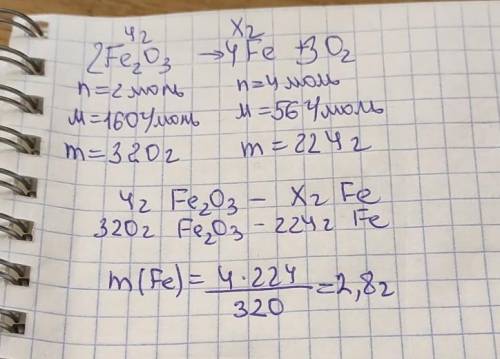 4г x г
2Fe₂O₃ → 4Fe + 3O₂
n = 2 моль n = 4 моль
M = 160 г/моль M = 56 г/моль
m = 320 г m = 224 г
4г Fe₂O₃ – x г Fe
320г Fe₂O₃ – 224г Fe
m(Fe) = 4·224/320 = 2,8г